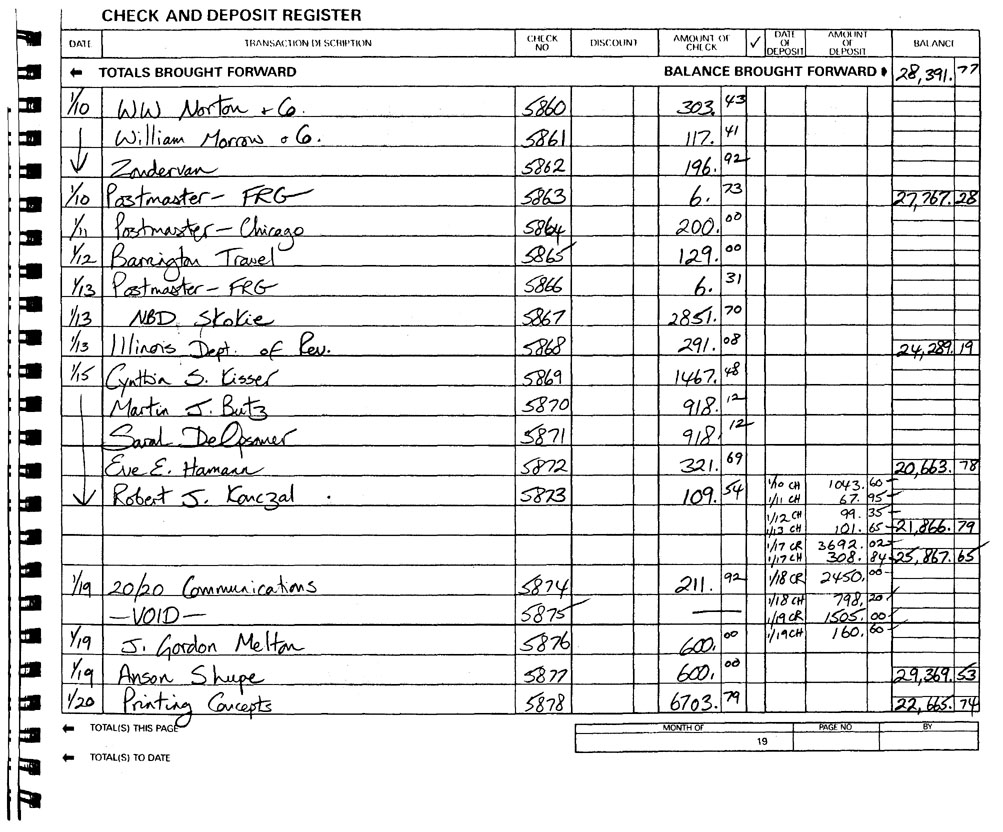 CHECK AND DEPOSIT REGISTER
DATE TRANSACTION DESCRIPTION CHECK NO DISCOUNT AMOUNT OF CHECK ✓ DATE OF DEPOSIT AMOUNT OF DEPOSIT BALANCE
← TOTALS BROUGHT FORWARD BALANCE BROUGHT FORWARD 28,391.77
1/10 WW Norton + Co. 5860 303.43
William Morrow + Co. 5861 117.41
Zondervan 5862 196.92
1/10 Postmaster - FRG 5863 6.73 27,767.28
1/11 Postmaster - Chicago 5864 200.00
1/12 Barrington Travel 5865 129.00
1/13 Postmaster - FRG 5866 6.31
1/13 NBD Skokie 5867 2851.70
1/13 Illinois Dept. of Rev. 5868 291.08 24,289.19
1/15 Cynthia S. Kisser 5869 1467.48
Martin J. Butz 5870 918.12
5871 918.12
Eve E. Hamann 5872 321.69 20,663.78
Robert J. Konczal 5873 109.54 1/10 CH 1043.60
1/11 CH 67.95
1/12 CH 99.35
1/13 CH 101.65 21,866.79
1/17 CR 3692.02
1/17 CH 308.84 25,867.65
1/19 20/20 Communications 5874 211.92 1/18 CR 2450.00
- VOID - 5875 — 1/18 CH 798.20
1/19 CR 1505.00
1/19 J. Gordon Melton 5876 600.00 1/19 CH 160.60
1/19 Anson Shupe 5877 600.00 29,369.53
1/20 Printing Concepts 5878 6703.79 22,665.74
← TOTAL(S) THIS PAGE MONTH OF PAGE NO BY
19
← TOTAL(S) TO DATE